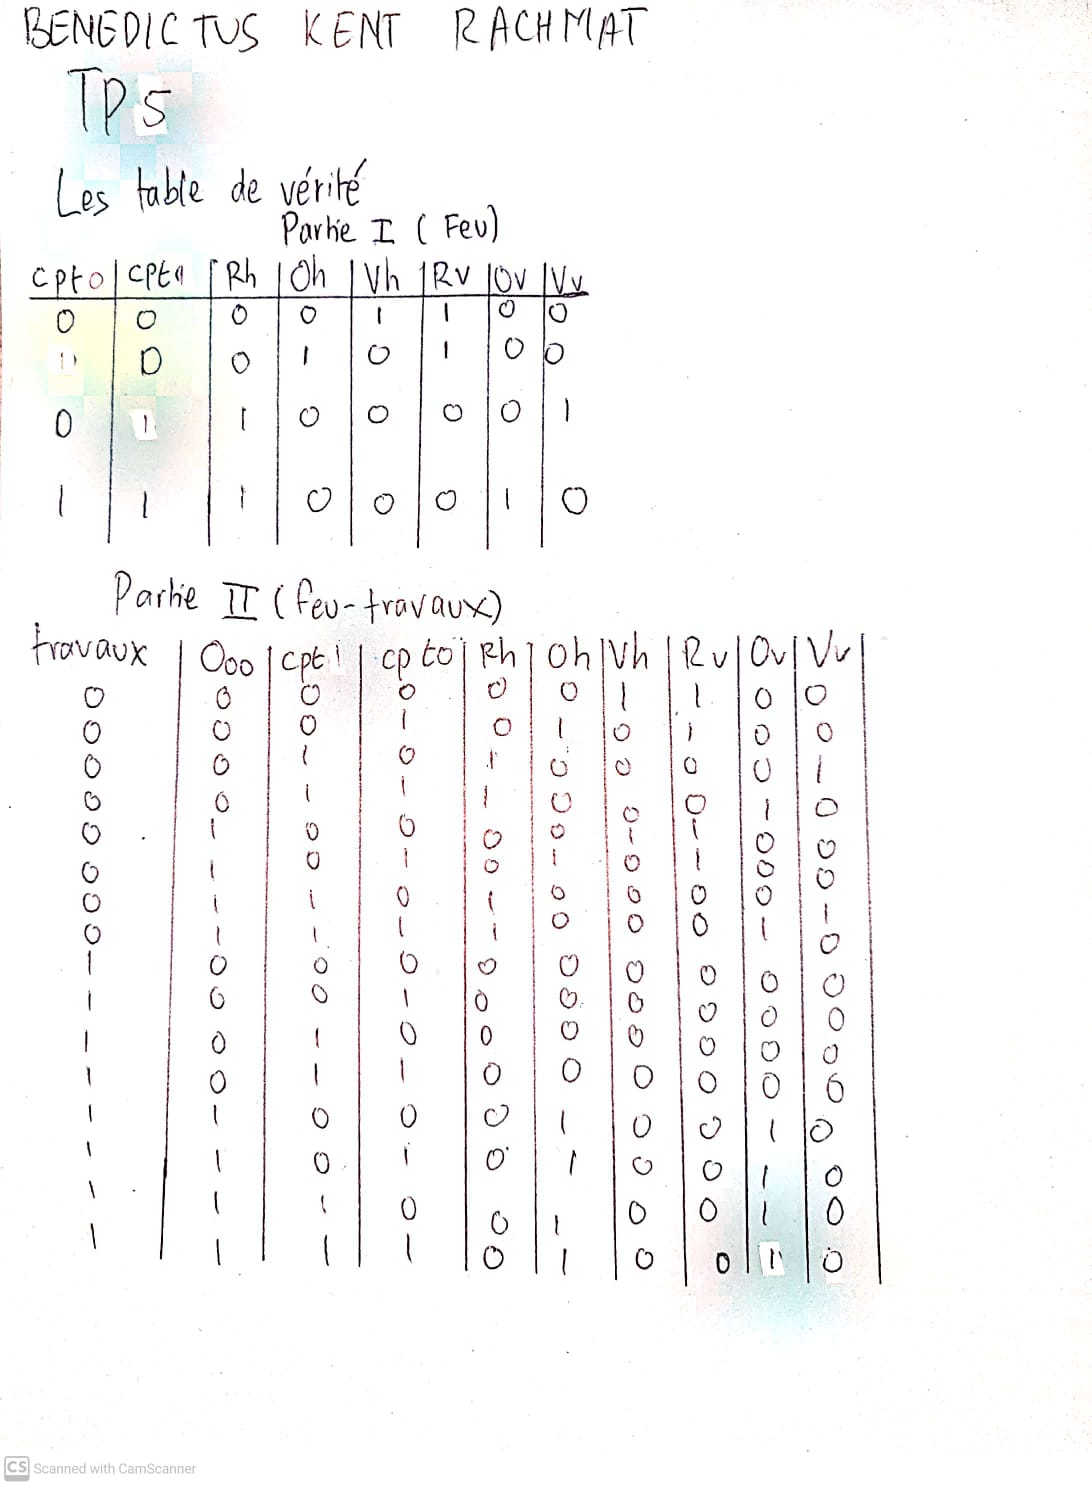 BENEDICTUS KENT RACHMAT
TP5
Les table de vérité
Partie I (Feu)
cpt0 | cpt1 | Rh | Oh | Vh | Rv | Ov | Vv
0 0 0 0 1 1 0 0
1 0 0 1 0 1 0 0
0 1 1 0 0 0 0 1
1 1 1 0 0 0 1 0
Partie II (feu-travaux)
travaux | Ooo | cpt1 | cpto | Rh | Oh | Vh | Rv | Ov | Vv
0 0 0 0 0 0 1 1 0 0
0 0 0 1 0 1 0 1 0 0
0 0 1 0 1 0 0 0 0 1
0 0 1 1 1 0 0 0 1 0
0 1 0 0 0 0 1 1 0 0
0 1 0 1 0 1 0 1 0 0
0 1 1 0 1 0 0 0 0 1
0 1 1 1 1 0 0 0 1 0
1 0 0 0 0 0 0 0 0 0
1 0 0 1 0 0 0 0 0 0
1 0 1 0 0 0 0 0 0 0
1 0 1 1 0 0 0 0 0 0
1 1 0 0 0 1 0 0 1 0
1 1 0 1 0 1 0 0 1 0
1 1 1 0 0 1 0 0 1 0
1 1 1 1 0 1 0 0 1 0
CS Scanned with CamScanner